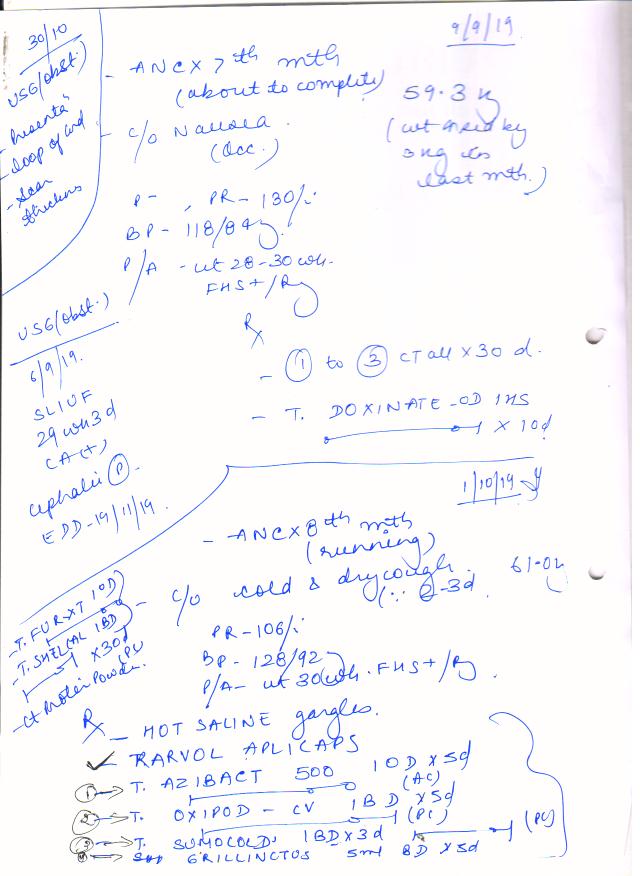 9/9/19
- ANC X 7th mth
(about to complete)
59.3 kg
(wt ↑sed by
3 kg in
last mth.)
- C/O Nausea.
(Occ.)
P- , PR - 130/
BP - 118/84
P/A - ut 28-30 wk.
FHS + /Rg
30/10
USG (obst.)
- Presenta
- loop of cord
- Scar
thickness
USG (obst.)
6/9/19.
SLIUF
29 wk 3 d
CA (+)
Cephalic (P)
EDD - 19/11/19.
Rx
- (1) to (3) CT all X 30 d.
- T. DOXINATE - OD 1HS
X 10d
1/10/19
- ANC X 8th mth
(running)
61.0
- C/O cold & dry cough.
2-3d
PR - 106/
BP - 128/92
P/A - ut 30 wk. FHS + /Rg.
- T. FUR-XT 1OD
- T. SHELCAL 1BD
X 30d
- Ct Protein Powder.
Rx - HOT SALINE gargles.
✓ KARVOL APLICAPS
(1) → T. AZIBACT 500 1OD X 5d
(AC)
(2) → T. OXIPOD - CV 1BD X 5d
(PC)
(3) → T. SUMOCOLD 1BD X 3d (PC)
(4) → GRILLINCTUS 5ml BD X 5d